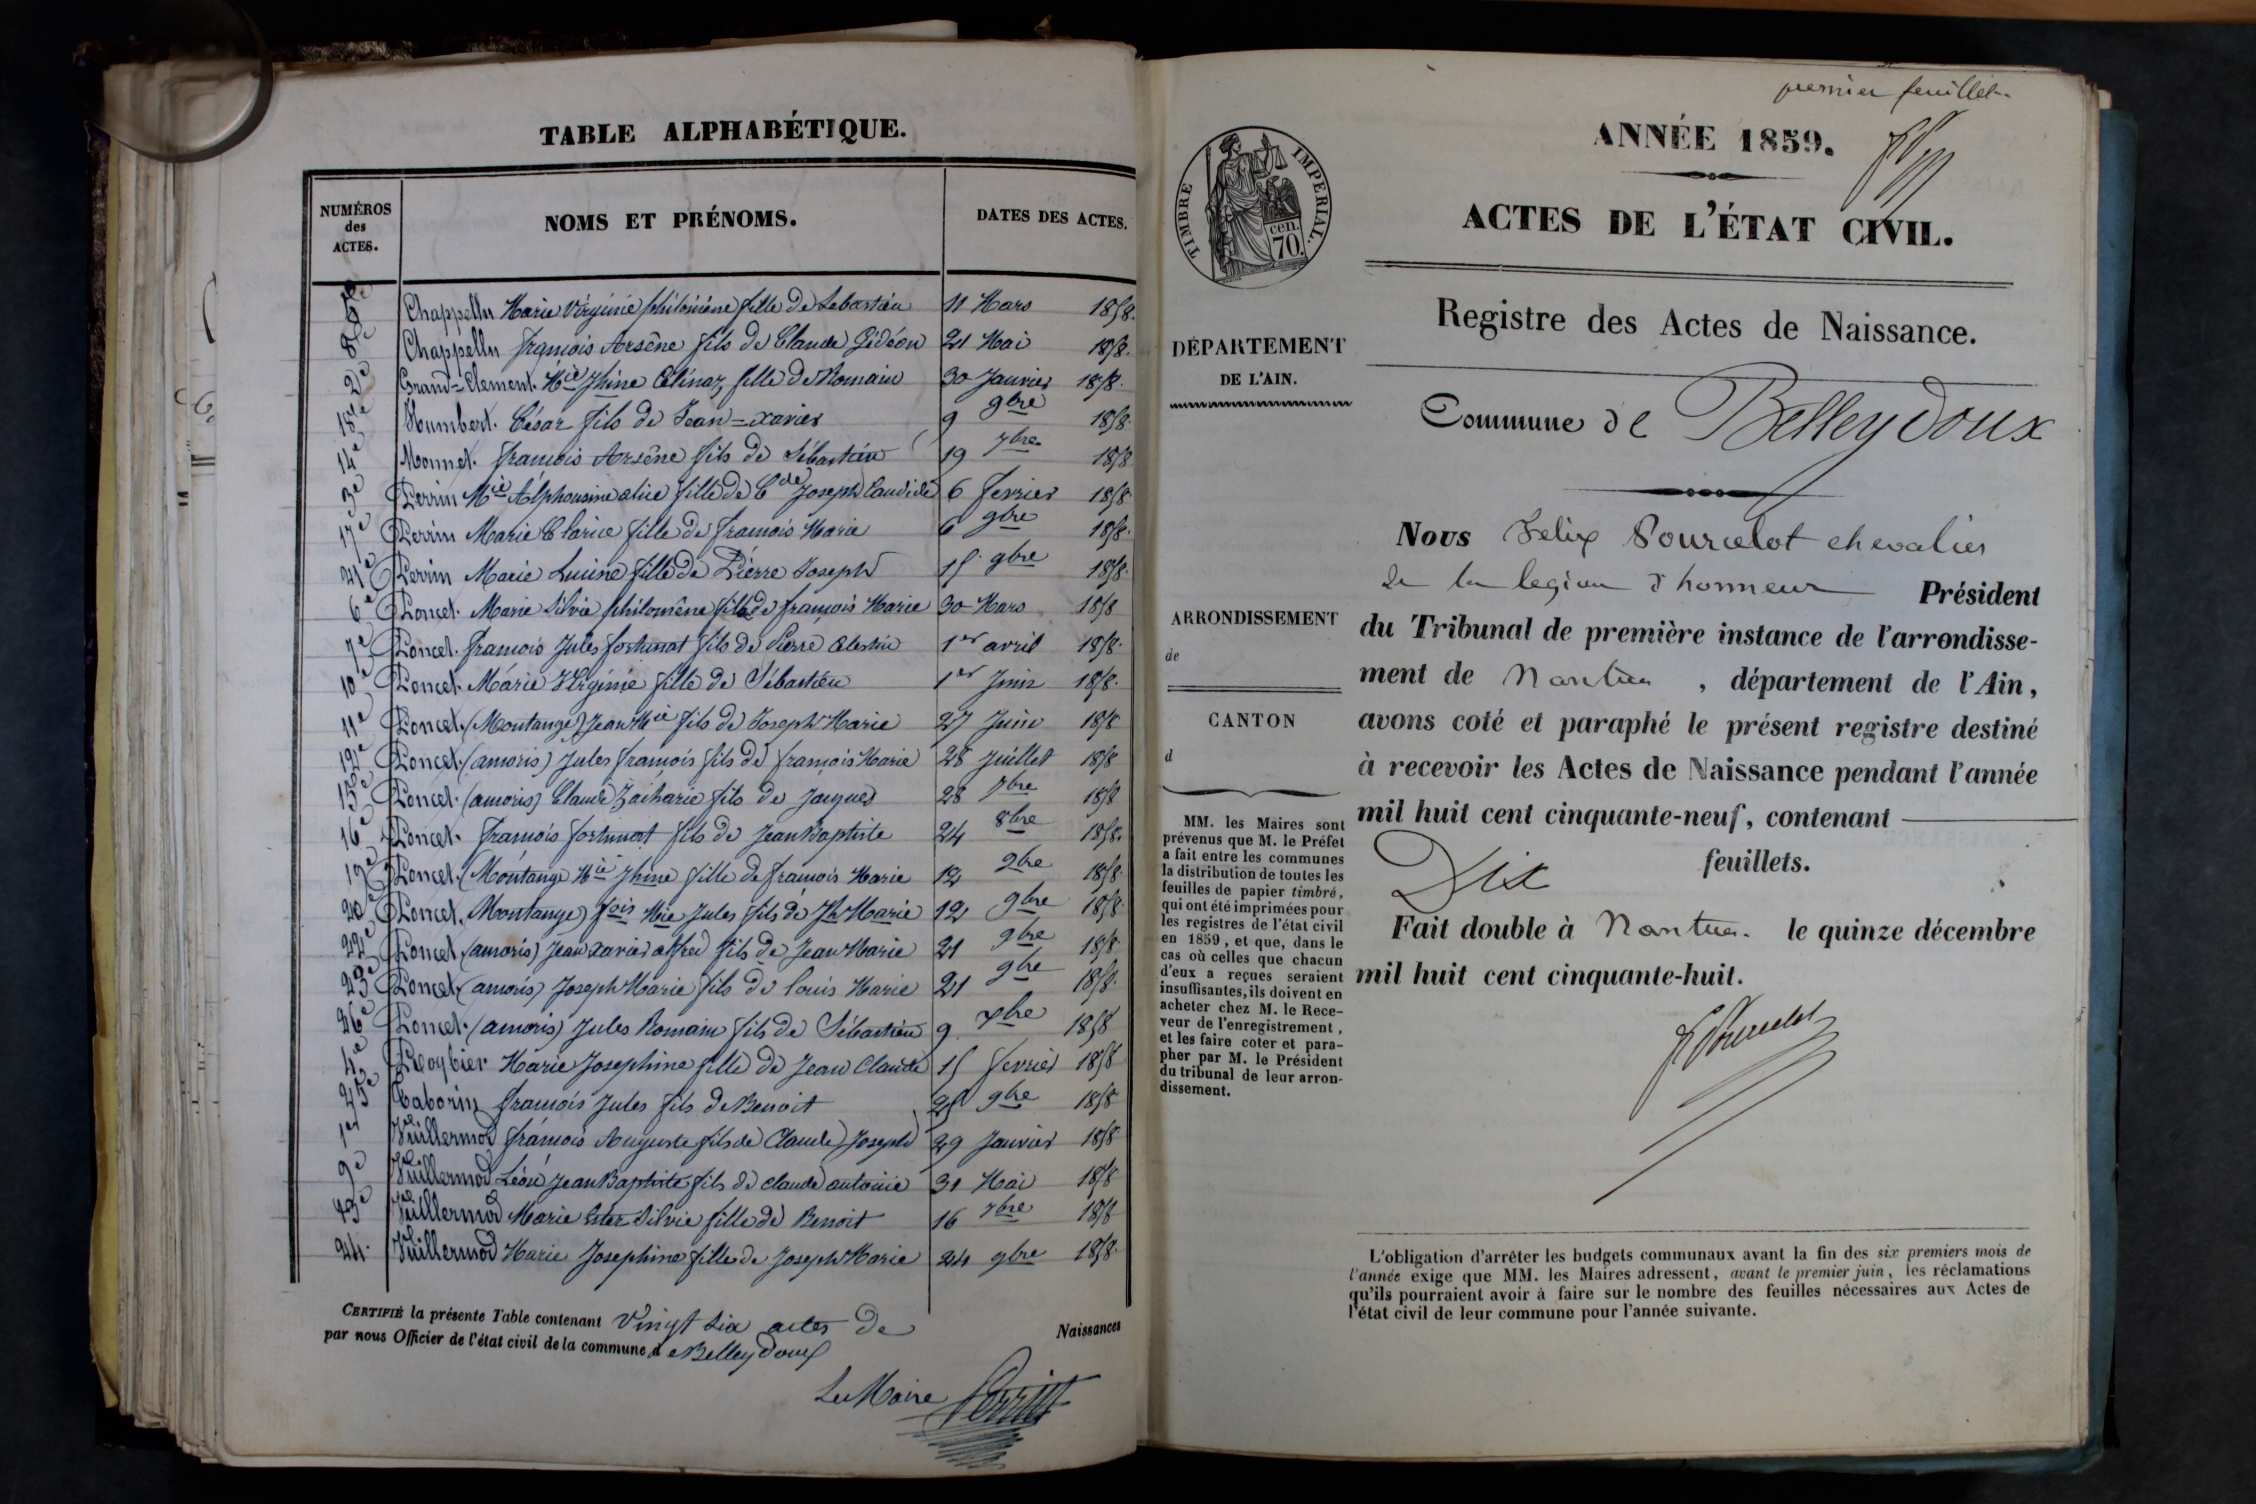 TABLE ALPHABÉTIQUE.
NUMÉROS des ACTES. NOMS ET PRÉNOMS. DATES DES ACTES.
5e Chappellu Marie Virginie philomène fille de Sebastien 11 Mars 1858.
8e Chappellu françois Arsène fils de Claude Gédéon 21 Mai 1858.
2e Grand=Clement. Mie Jhine Célinaz fille de Romain 30 Janvier 1858.
18e Humbert. César fils de Jean=xavier 9 9bre 1858.
14e Monnet. françois Arsène fils de Sébastien 19 7bre 1858
3e Perrin Mie Alphonsine alice fille de Cde Joseph Candide 6 fevrier 1858
17e Perrin Marie Clarice fille de françois Marie 6 9bre 1858.
21e Perrin Marie Lucine fille de Pierre Joseph 15 9bre 1858.
6e Poncet. Marie Silvie philomène fille de françois Marie 30 Mars 1858
7e Poncet. françois Jules fortunat fils de Pierre Celestin 1er avril 1858.
10e Poncet. Marie Virginie fille de Sébastien 1er Juin 1858.
11e Poncet. (Montange) Jean Mie fils de Joseph Marie 27 Juin 1858
12e Poncet. (amoris) Jules françois fils de françois Marie 28 Juillet 1858
15e Poncet. (amoris) Claude Zacharie fils de Jacques 28 7bre 1858
16e Poncet. françois fortunat fils de Jean Baptiste 24 8bre 1858.
19e Poncet. (Montange Mie Jhine fille de françois Marie 12 9bre 1858.
20e Poncet. Montange) fois Mie Jules fils de Jh Marie 12 9bre 1858.
22e Poncet (amoris) Jean xavier alfred fils de Jean Marie 21 9bre 1858.
23e Poncet (amoris) Joseph Marie fils de louis Marie 21 9bre 1858.
26e Poncet. (amoris) Jules Romain fils de Sébastien 9 xbre 1858
4e Reybier Marie Josephine fille de Jean Claude 15 fevrier 1858
25e Taborin françois Jules fils de Benoit 25 9bre 1858
1er Vuillermod françois Auguste fils de Claude Joseph 29 Janvier 1858
9e Vuillermod Léon Jean Baptiste fils de claude antoine 31 Mai 1858
13e Vuillermod Marie Ester Silvie fille de Benoit 16 7bre 1858
24. Vuillermod Marie Josephine fille de Joseph Marie 24 9bre 1858.
CERTIFIÉ la présente Table contenant Vingt six actes de Naissances
par nous Officier de l'état civil de la commune de Belleydoux
Le Maire Perrin
premier feuillet.
TIMBRE IMPERIAL.
cen. 70.
ANNÉE 1859.
ACTES DE L'ÉTAT CIVIL.
Registre des Actes de Naissance.
DÉPARTEMENT
DE L'AIN.
ARRONDISSEMENT
de
CANTON
d
MM. les Maires sont
prévenus que M. le Préfet
a fait entre les communes
la distribution de toutes les
feuilles de papier timbré,
qui ont été imprimées pour
les registres de l'état civil
en 1859, et que, dans le
cas où celles que chacun
d'eux a reçues seraient
insuffisantes, ils doivent en
acheter chez M. le Rece-
veur de l'enregistrement,
et les faire coter et para-
pher par M. le Président
du tribunal de leur arron-
dissement.
Commune de Belleydoux
Nous Felix Pourcelot chevalier
de la legion d'honneur Président
du Tribunal de première instance de l'arrondisse-
ment de Nantua , département de l'Ain,
avons coté et paraphé le présent registre destiné
à recevoir les Actes de Naissance pendant l'année
mil huit cent cinquante-neuf, contenant
Dix feuillets.
Fait double à Nantua. le quinze décembre
mil huit cent cinquante-huit.
F Pourcelot
L'obligation d'arrêter les budgets communaux avant la fin des six premiers mois de
l'année exige que MM. les Maires adressent, avant le premier juin, les réclamations
qu'ils pourraient avoir à faire sur le nombre des feuilles nécessaires aux Actes de
l'état civil de leur commune pour l'année suivante.